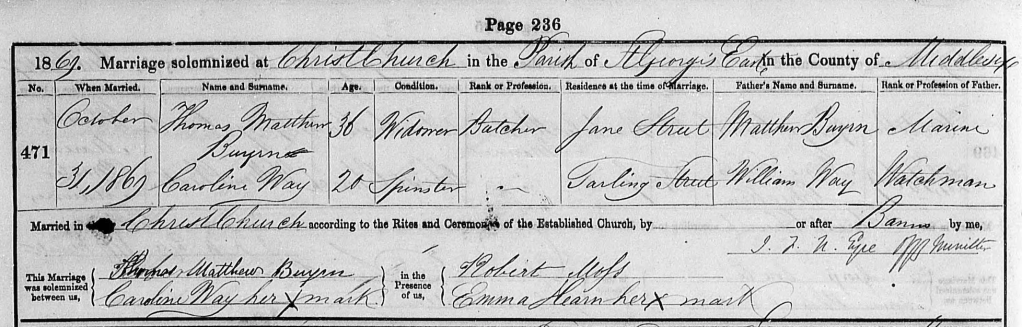 Page 236
1869. Marriage solemnized at Christ Church in the Parish of St Georgis East in the County of Middlesex
No. When Married. Name and Surname. Age. Condition. Rank or Profession. Residence at the time of Marriage. Father's Name and Surname. Rank or Profession of Father.
October Thomas Matthew 36 Widower Jane Street Matthew Buyrn Marine
471 Buyrn
31, 1869 Caroline Way 20 Spinster – Tarling Street William Way Watchman
Married in Christ Church according to the Rites and Ceremonies of the Established Church, by or after Banns by me,
Thomas Matthew Buyrn Robert Moss
This Marriage was solemnized between us, in the Presence of us,
Caroline Way her X mark Emma Hearn her X mark